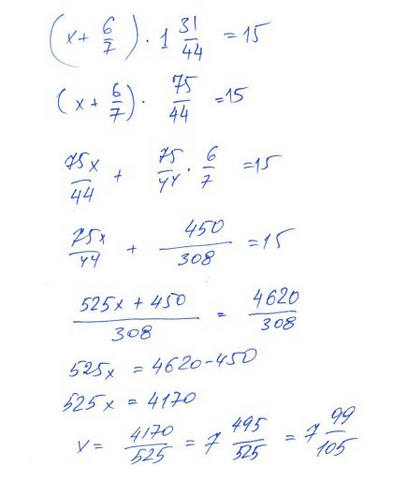 (x + 6/7) · 1 31/44 = 15
(x + 6/7) · 75/44 = 15
75x/44 + 75/44 · 6/7 = 15
75x/44 + 450/308 = 15
525x + 450/308 = 4620/308
525x = 4620 - 450
525x = 4170
x = 4170/525 = 7 495/525 = 7 99/105